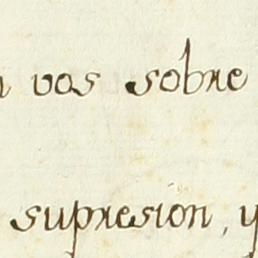 vos sobre
supresion, y